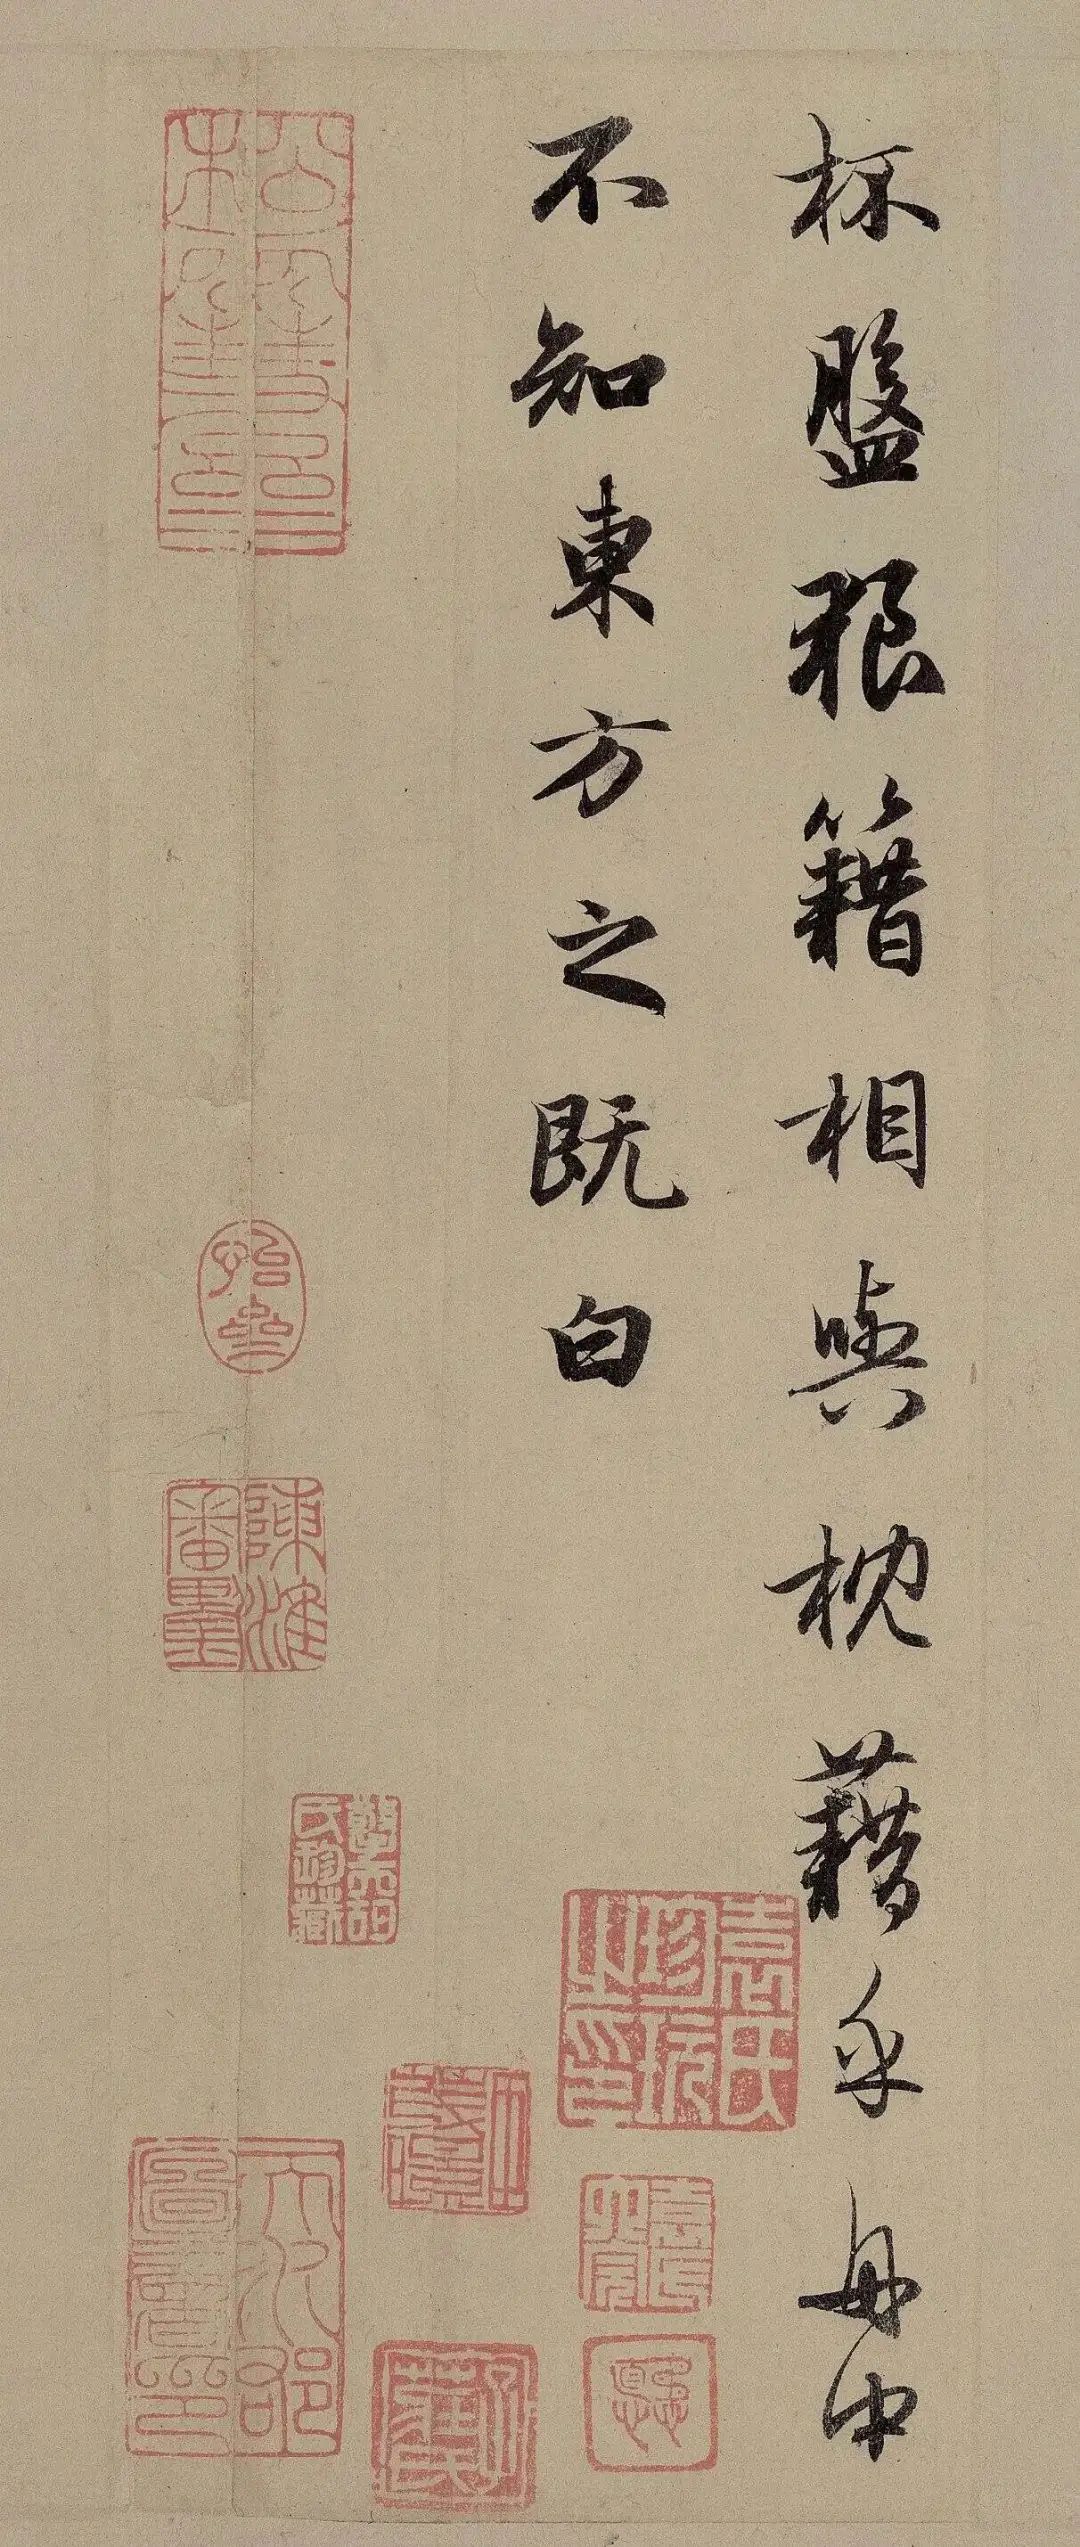 杯盤狼籍相與枕藉乎舟中
不知東方之既白
陳淮審墨